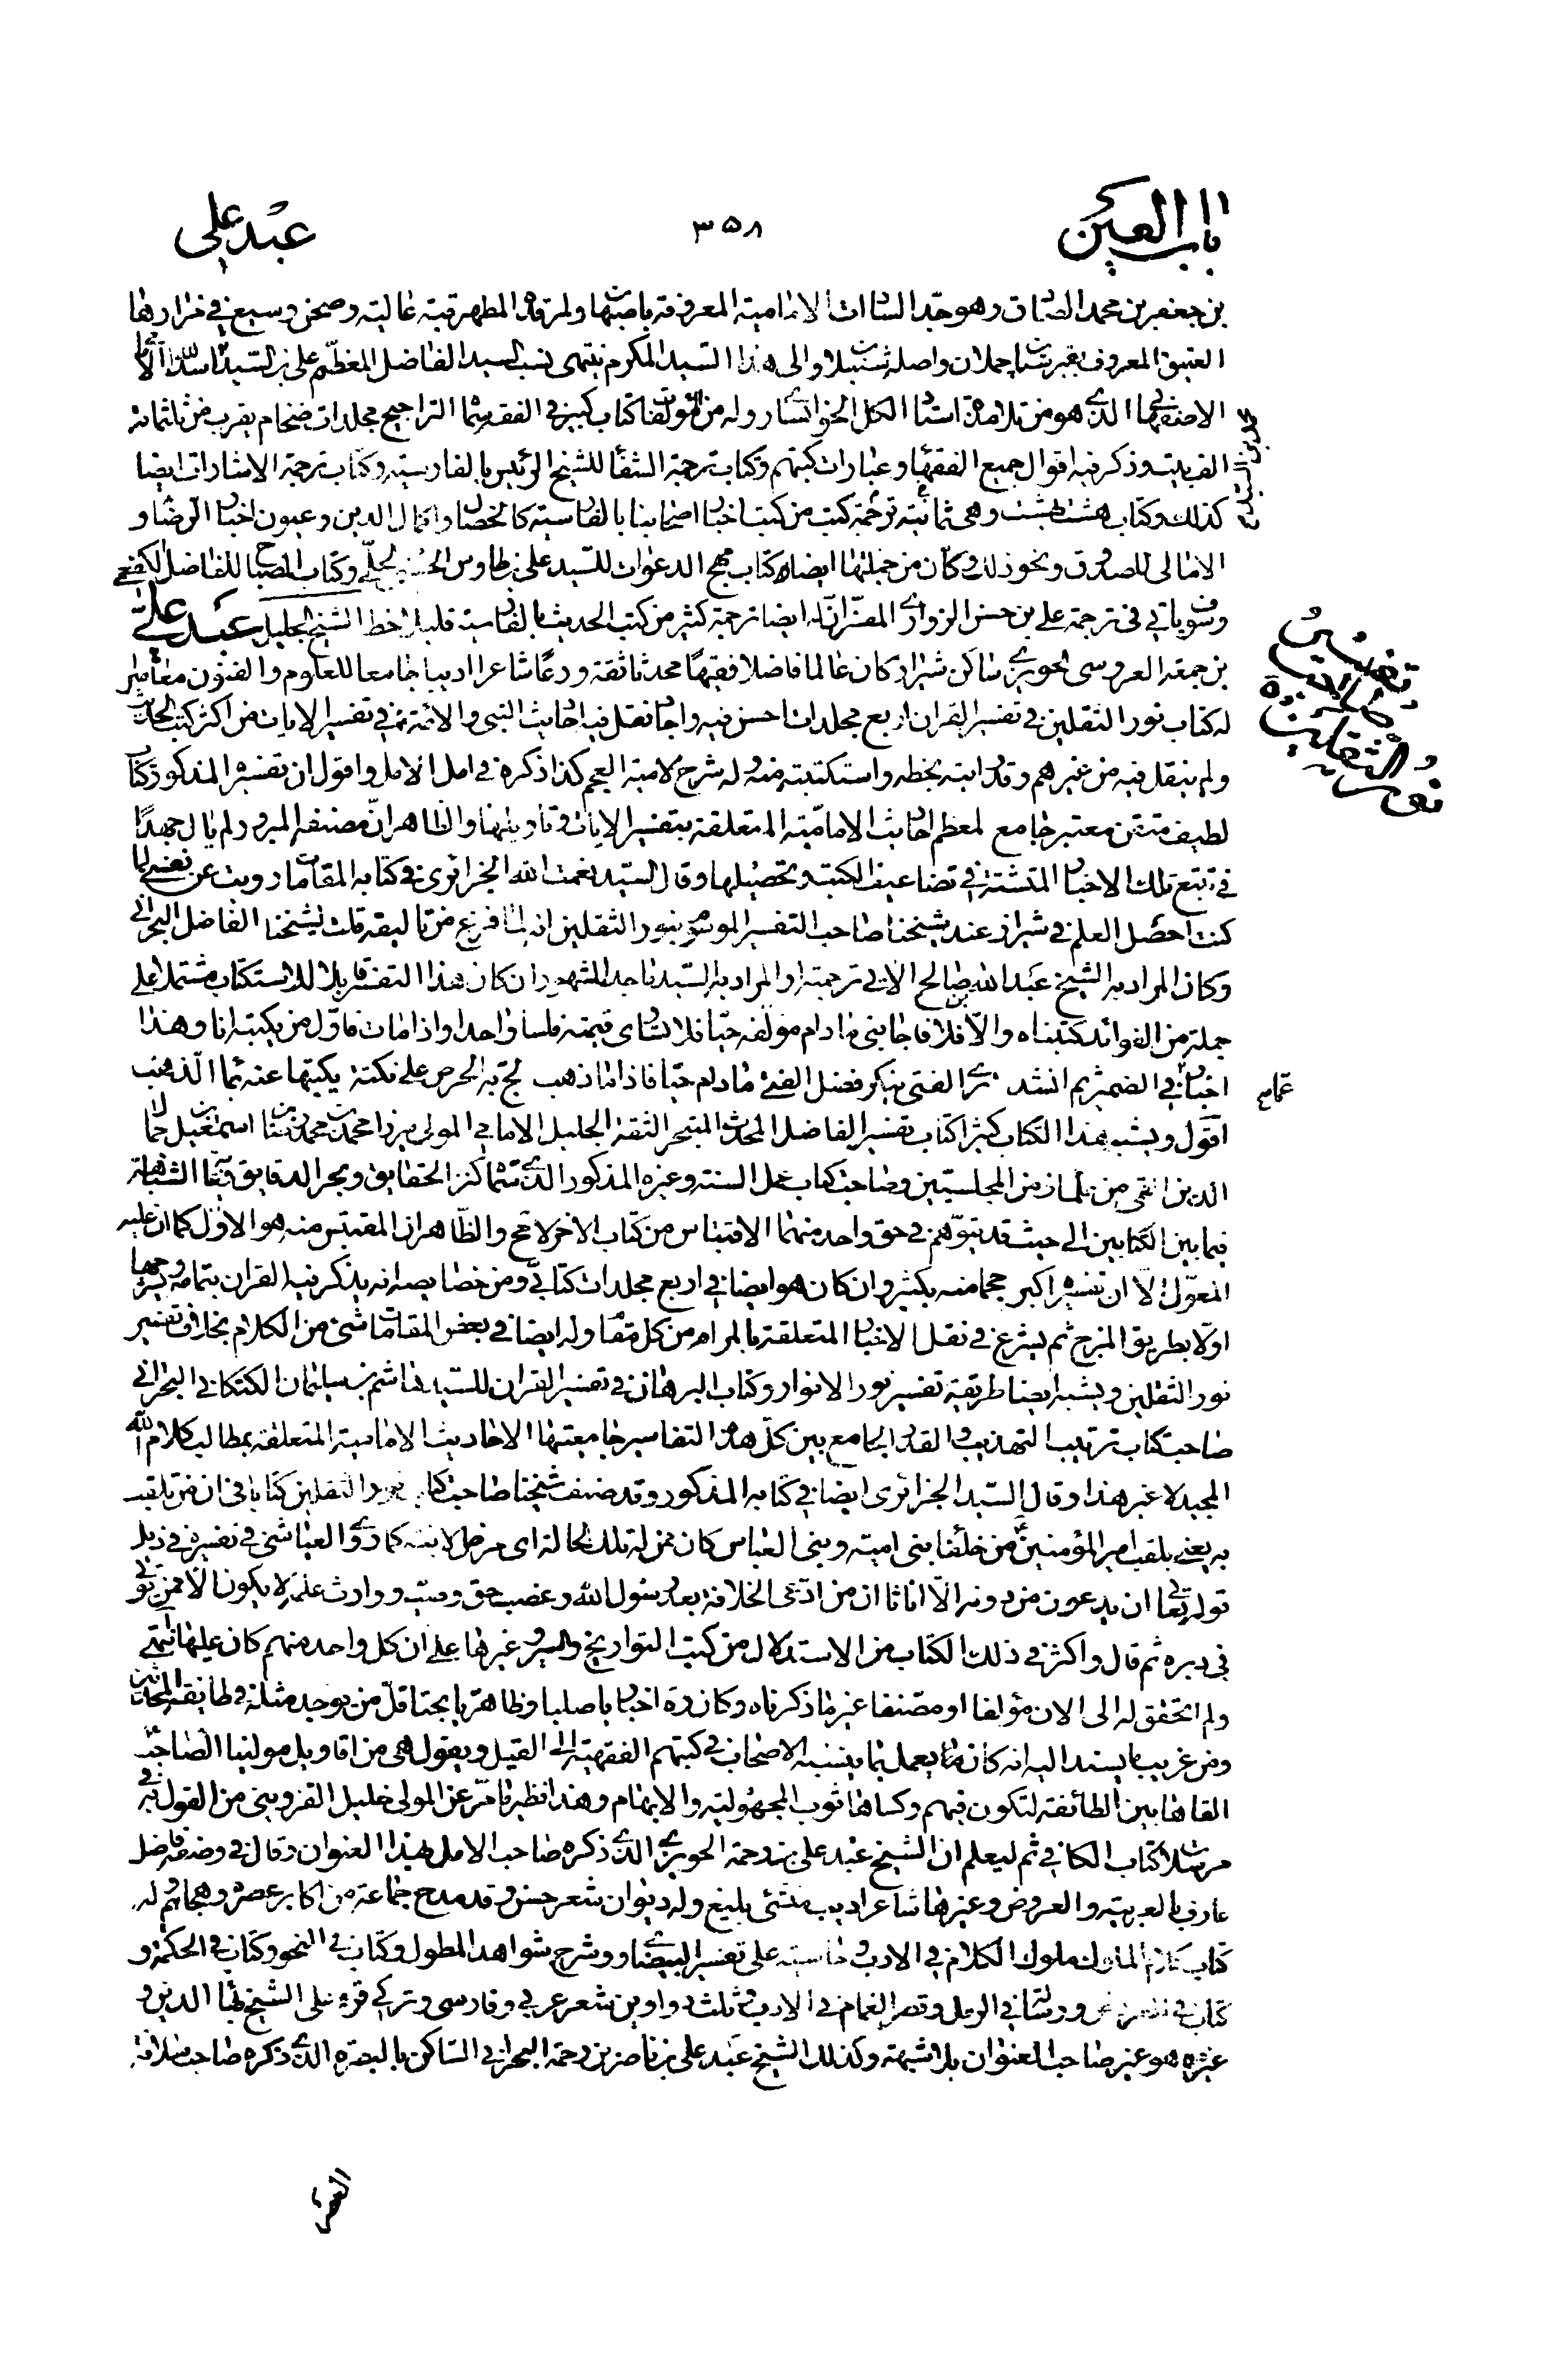 باب العين
٣٥٨
عبد علي
بن جعفر بن محمد الصادق وهو جد السادات الامامية المعروفة باصبهان ولمرقده المطهر قبة عالية وصحن وسيع في مزارها
العتيق المعروف بقبرستان چملان واصله شنبلاو والى هذا السيد المكرم ينتهى نسب السيد الفاضل المعظم على بن السيد
الاصفهاني الذي هو من تلامذة استاد الكل الخوانساري وله من المؤلفات كتاب كبير في الفقه سماه التراجيح مجلدات ضخام يقرب من ثلثمائة
الف بيت وذكر فيه اقوال جميع الفقهاء وعبارات كتبهم وكتاب ترجمة الشفا للشيخ الرئيس بالفارسيه وكتاب ترجمة الاشارات ايضا
كذلك وكتاب هشت بهشت وهي ثمانية ترجمة كتب من كتب اخبار اصحابنا بالفارسية كالخصال واكمال الدين وعيون اخبار الرضا و
الامالى للصدوق ونحو ذلك وكان من جملتها ايضا كتاب مهج الدعوات للسيد على بن طاوس الحسنى الحلي وكتاب المصباح للفاضل الكفعمي
وسوف ياتي في ترجمة علي بن حسن الزواري المفسر ان له ايضا ترجمة كثير من كتب الحديث بالفارسية فليلاحظ الشيخ الجليل عبد علي
بن جمعه العروسى الحويزي ساكن شيراز كان عالما فاضلا فقيها محدثا ثقة ورعا شاعرا اديبا جامعا للعلوم والفنون معاصر
له كتاب نور الثقلين في تفسير القران اربع مجلدات احسن فيه واجاد نقل فيه احاديث النبي والائمة في تفسير الايات من اكثر كتب الحديث
ولم ينقل فيه من غيرهم وقد رايته بخطه واستكتبته منه وله شرح لامية العجم كذا ذكره في امل الامل واقول ان تفسيره المذكور كتاب
لطيف متقن معتبر جامع لمعظم احاديث الامامية المتعلقة بتفسير الايات وتاويلها والظاهر ان مصنفه المبرور لم يال جهدا
في تتبع تلك الاخبار المتشتة في تضاعيف الكتب وتحصيلها وقال السيد نعمت الله الجزائري في كتابه المقامات رويت عن بعض
كنت احصل العلم في شيراز عند شيخنا صاحب التفسير الموسوم بنور الثقلين انه لما فرغ من تاليفه قلت لشيخنا الفاضل البحراني
وكان المراد به الشيخ عبد الله بن صالح الاتي ترجمته او المراد به السيد ماجد المشهور ان كان هذا التفسير قابلا للاستكتاب مشتملا على
جملة من الفوائد كتبناه والا فلا فاجابني ما دام مؤلفه حيا فلا تساوى قيمته فلسا واحدا واذا مات فاول من يكتبه انا وهذا
اخبار في الضمير ثم انشد ترى الفتى ينكر فضل الفتى ما دام حيا فاذا ما ذهب لج به الحرص على نكتة يكتبها عنه بماء الذهب
اقول ويشبه هذا الكتاب كثيرا كتاب تفسير الفاضل المحدث المتبحر الثقة الجليل الامامي المولى ميرزا محمد بن محمد رضا بن اسمعيل
الدين القمي من تلامذة المجلسيين وصاحب كتاب عمل السنة وغيره المذكور الذي سماه كنز الحقايق وبحر الدقايق
فيما بين الكتابين الى حيث قد يتوهم في حق واحد منهما الاقتباس من كتاب الاخر لا مح والظاهر ان المقتبس منه هو الاول كما ان عليه
المعول الا ان تفسيره اكبر حجما منه بكثير وان كان هو ايضا في اربع مجلدات كتابي ومن خصايصه انه يذكر فيه القران بتمامه
اولا بطريق المزج ثم يشرع في نقل الاخبار المتعلقة بالمرام من كل مقام وله ايضا في بعض المقامات شئ من الكلام بخلاف تفسير
نور الثقلين ويشبه ايضا طريقة تفسير نور الانوار وكتاب البرهان في تفسير القران للسيد هاشم بن سليمان الكتكاني البحراني
صاحب كتاب ترتيب التهذيب والقدر الجامع بين كل هذه التفاسير جامعيتها الاحاديث الامامية المتعلقة بمطالب كلام الله
المجيد لا غير هذا وقال السيد الجزائري ايضا في كتابه المذكور وقد صنف شيخنا صاحب كتاب نور الثقلين كتابا في ان من تلقب
به يعني بلقب امير المؤمنين من خلفاء بنى امية وبنى العباس كان ممن له تلك الحالة اى مرض الابنه كما روى العياشي في تفسيره في ذيل
قوله تعالى ان يدعون من دونه الا اناثا ان من ادعى الخلافة بعد رسول الله وغصب حق وصيه ووارث علمه لا يكون الا ممن يؤتى
في دبره ثم قال واكثر في ذلك الكتاب من الاستدلال من كتب التواريخ والسير وغيرها على ان كل واحد منهم كان عليها انتهى
ولم اتحقق له الى الان مؤلفا او مصنفا غير ما ذكرناه وكان ره اخباريا صلبا وظاهريا بحتا قل من يوجد مثله في طايفة المحدثين
ومن غريب ما يسند اليه انه كان ره يعمل بما ينسبه الاصحاب في كتبهم الفقهية الى القيل ويقول هي من اقاويل مولينا الصاحب
القاها بين الطائفة لتكون فيهم وكساها ثوب المجهولية والابهام وهذا نظير ما مر عن المولى خليل القزويني من القول في
مرسلات كتاب الكافي ثم ليعلم ان الشيخ عبد علي بن رحمة الحويزي الذي ذكره صاحب الامل بهذا العنوان وقال في وصفه فاضل
عارف بالعربية والعروض وغيرها شاعر اديب منشئ بليغ وله ديوان شعر حسن وقد مدح جماعة من اكابر عصره وهجاهم له
كتاب كلام الملوك ملوك الكلام في الادب وحاشية على تفسير البيضاوي وشرح شواهد المطول وكتاب في النحو وكتاب في الحكمة و
كتاب في العروض ورسالة في الرمل وقصر الغمام في الادب وثلث دواوين شعر عربي وفارسي وتركي قرء على الشيخ بهاء الدين و
غيره هو غير صاحب العنوان بلا شبهة وكذلك الشيخ عبد على بن ناصر بن رحمة البحراني الساكن بالبصرة الذي ذكره صاحب سلافة
تفسير
نور الثقلين
العصر